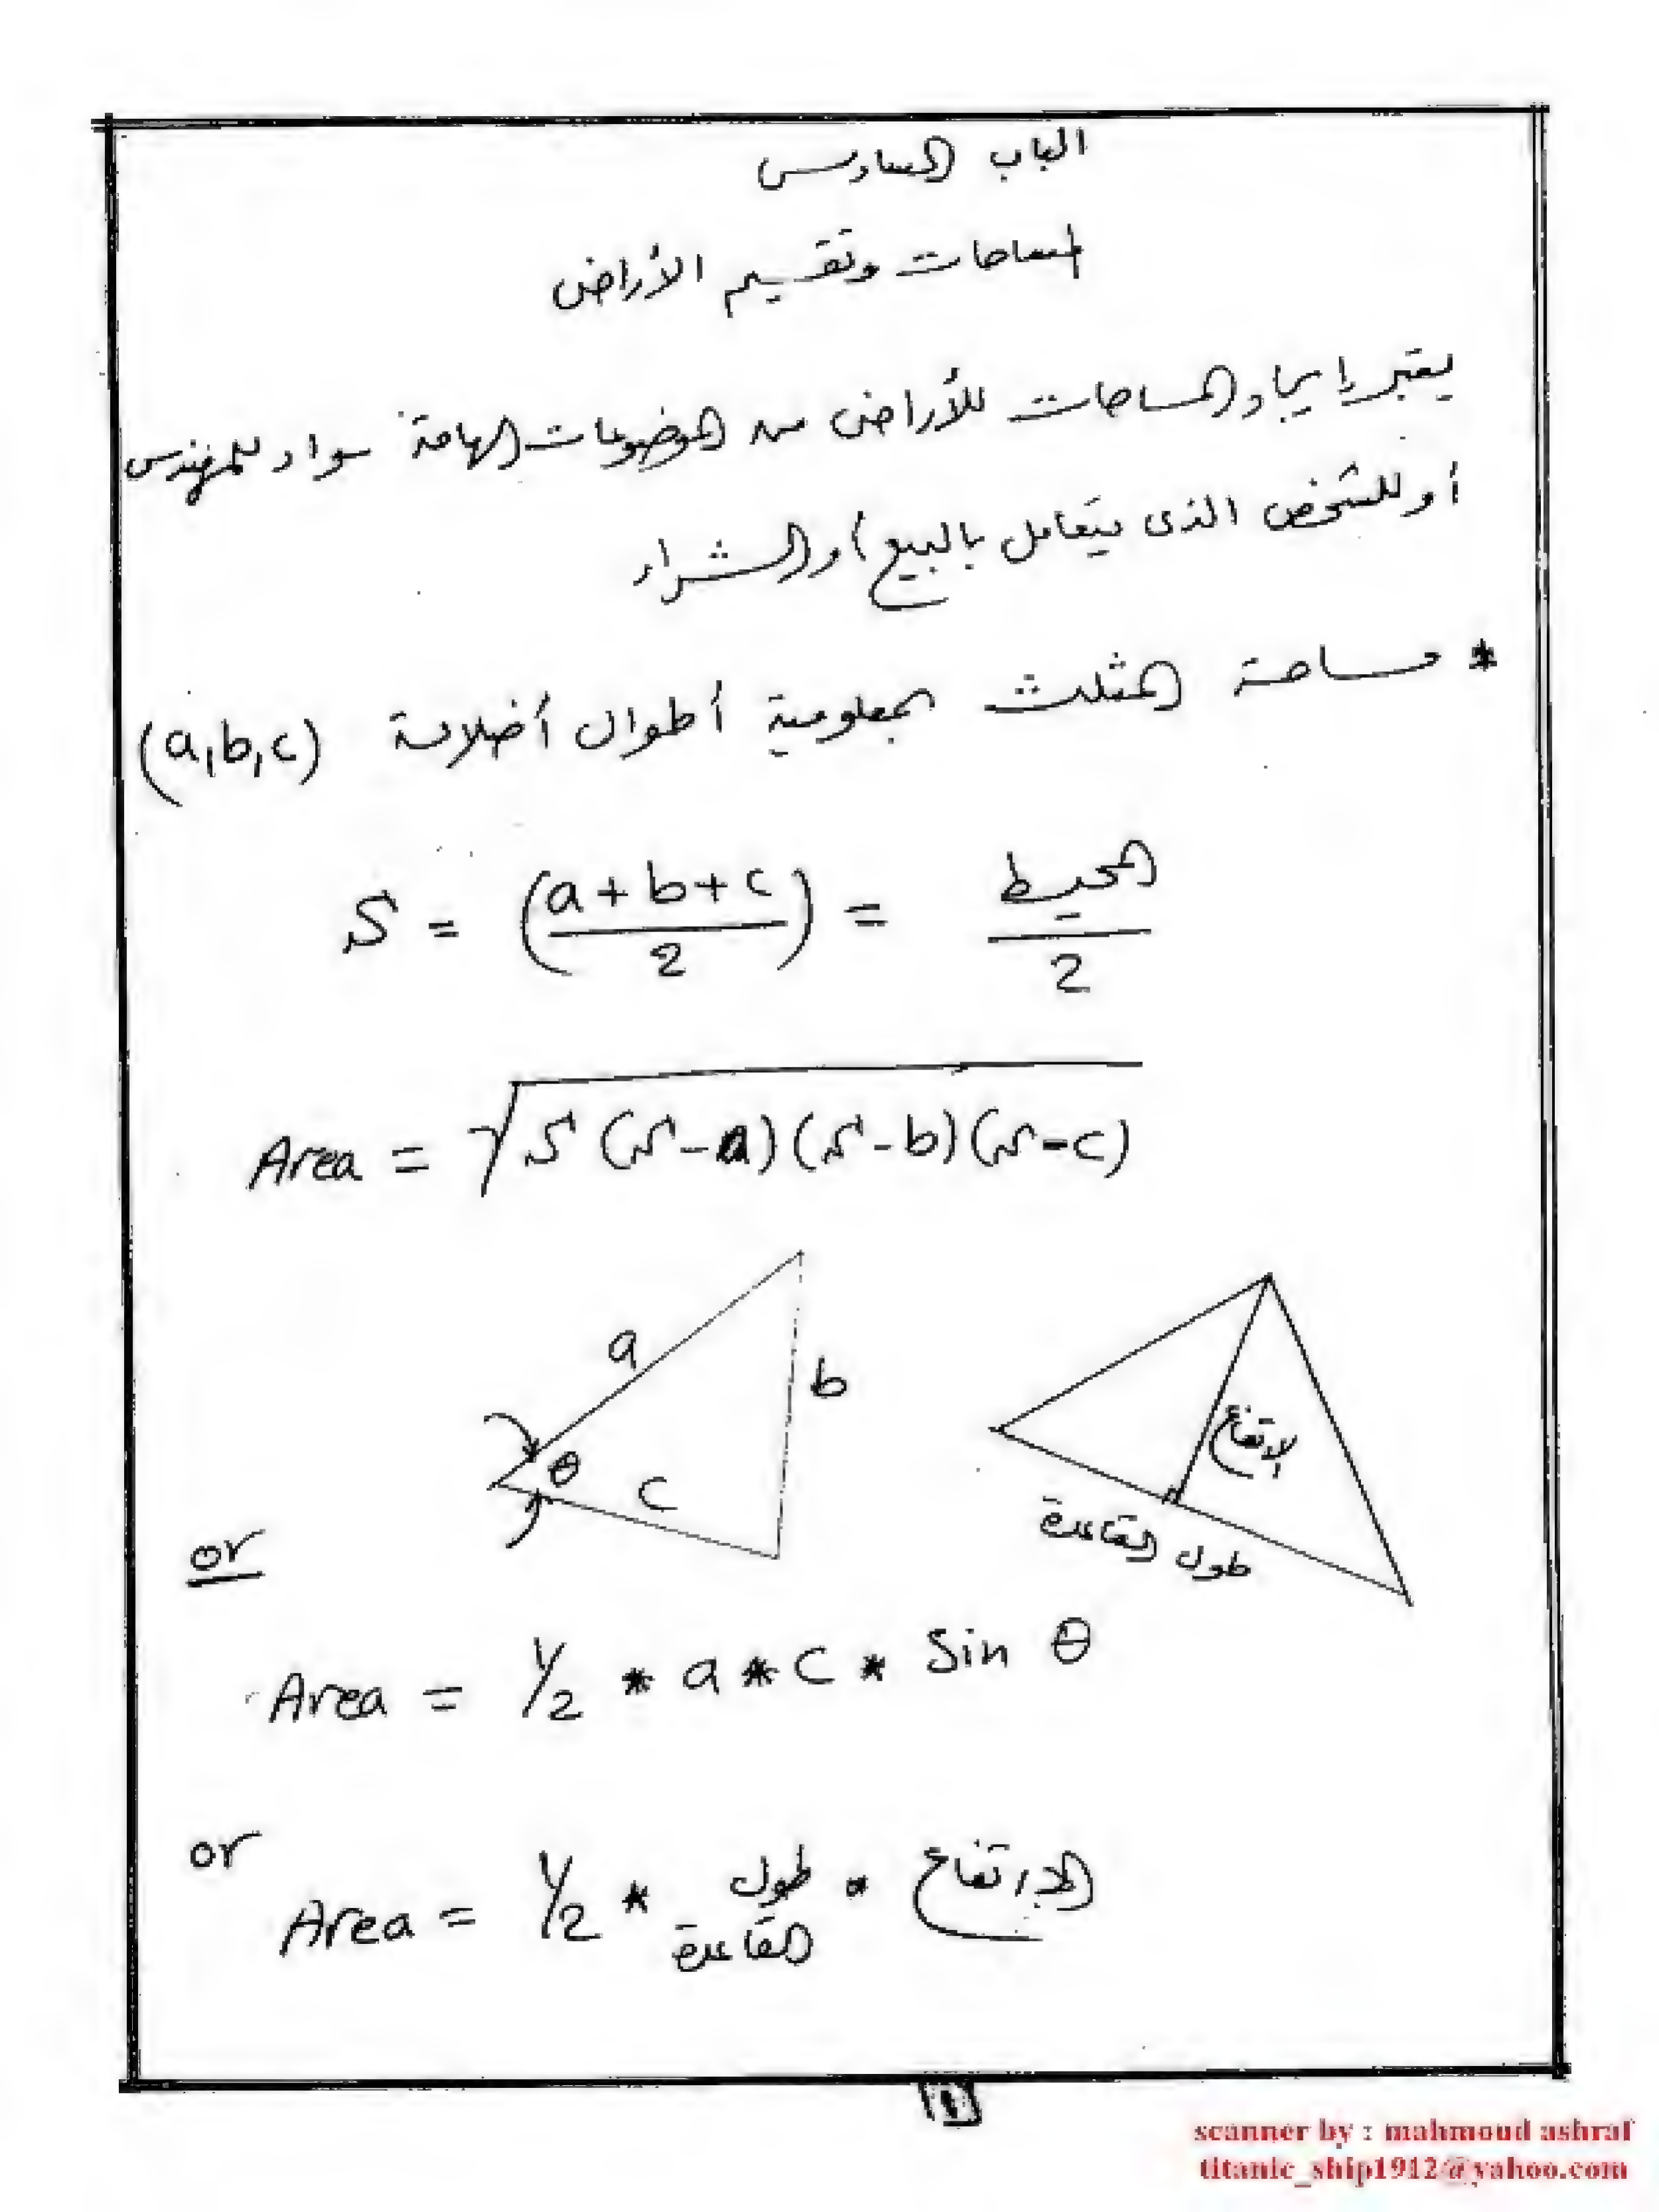 الباب السادس
المساحات وتقسيم الأراضى
يعتبر إيجاد المساحات للأراضى من الموضوعات الهامة سواء للمهندس
أو للشخص الذى يتعامل بالبيع أو الشراء
* مساحة المثلث بمعلومية أطوال أضلاعة (a,b,c)
S = (a+b+c / 2) = المحيط / 2
Area = √S(S-a)(S-b)(S-c)
a
b
θ
c
الارتفاع
طول القاعدة
or
Area = 1/2 * a * c * Sin θ
or
Area = 1/2 * طول القاعدة * الارتفاع
scanner by : mahmoud ashraf
titanic_ship1912@yahoo.com